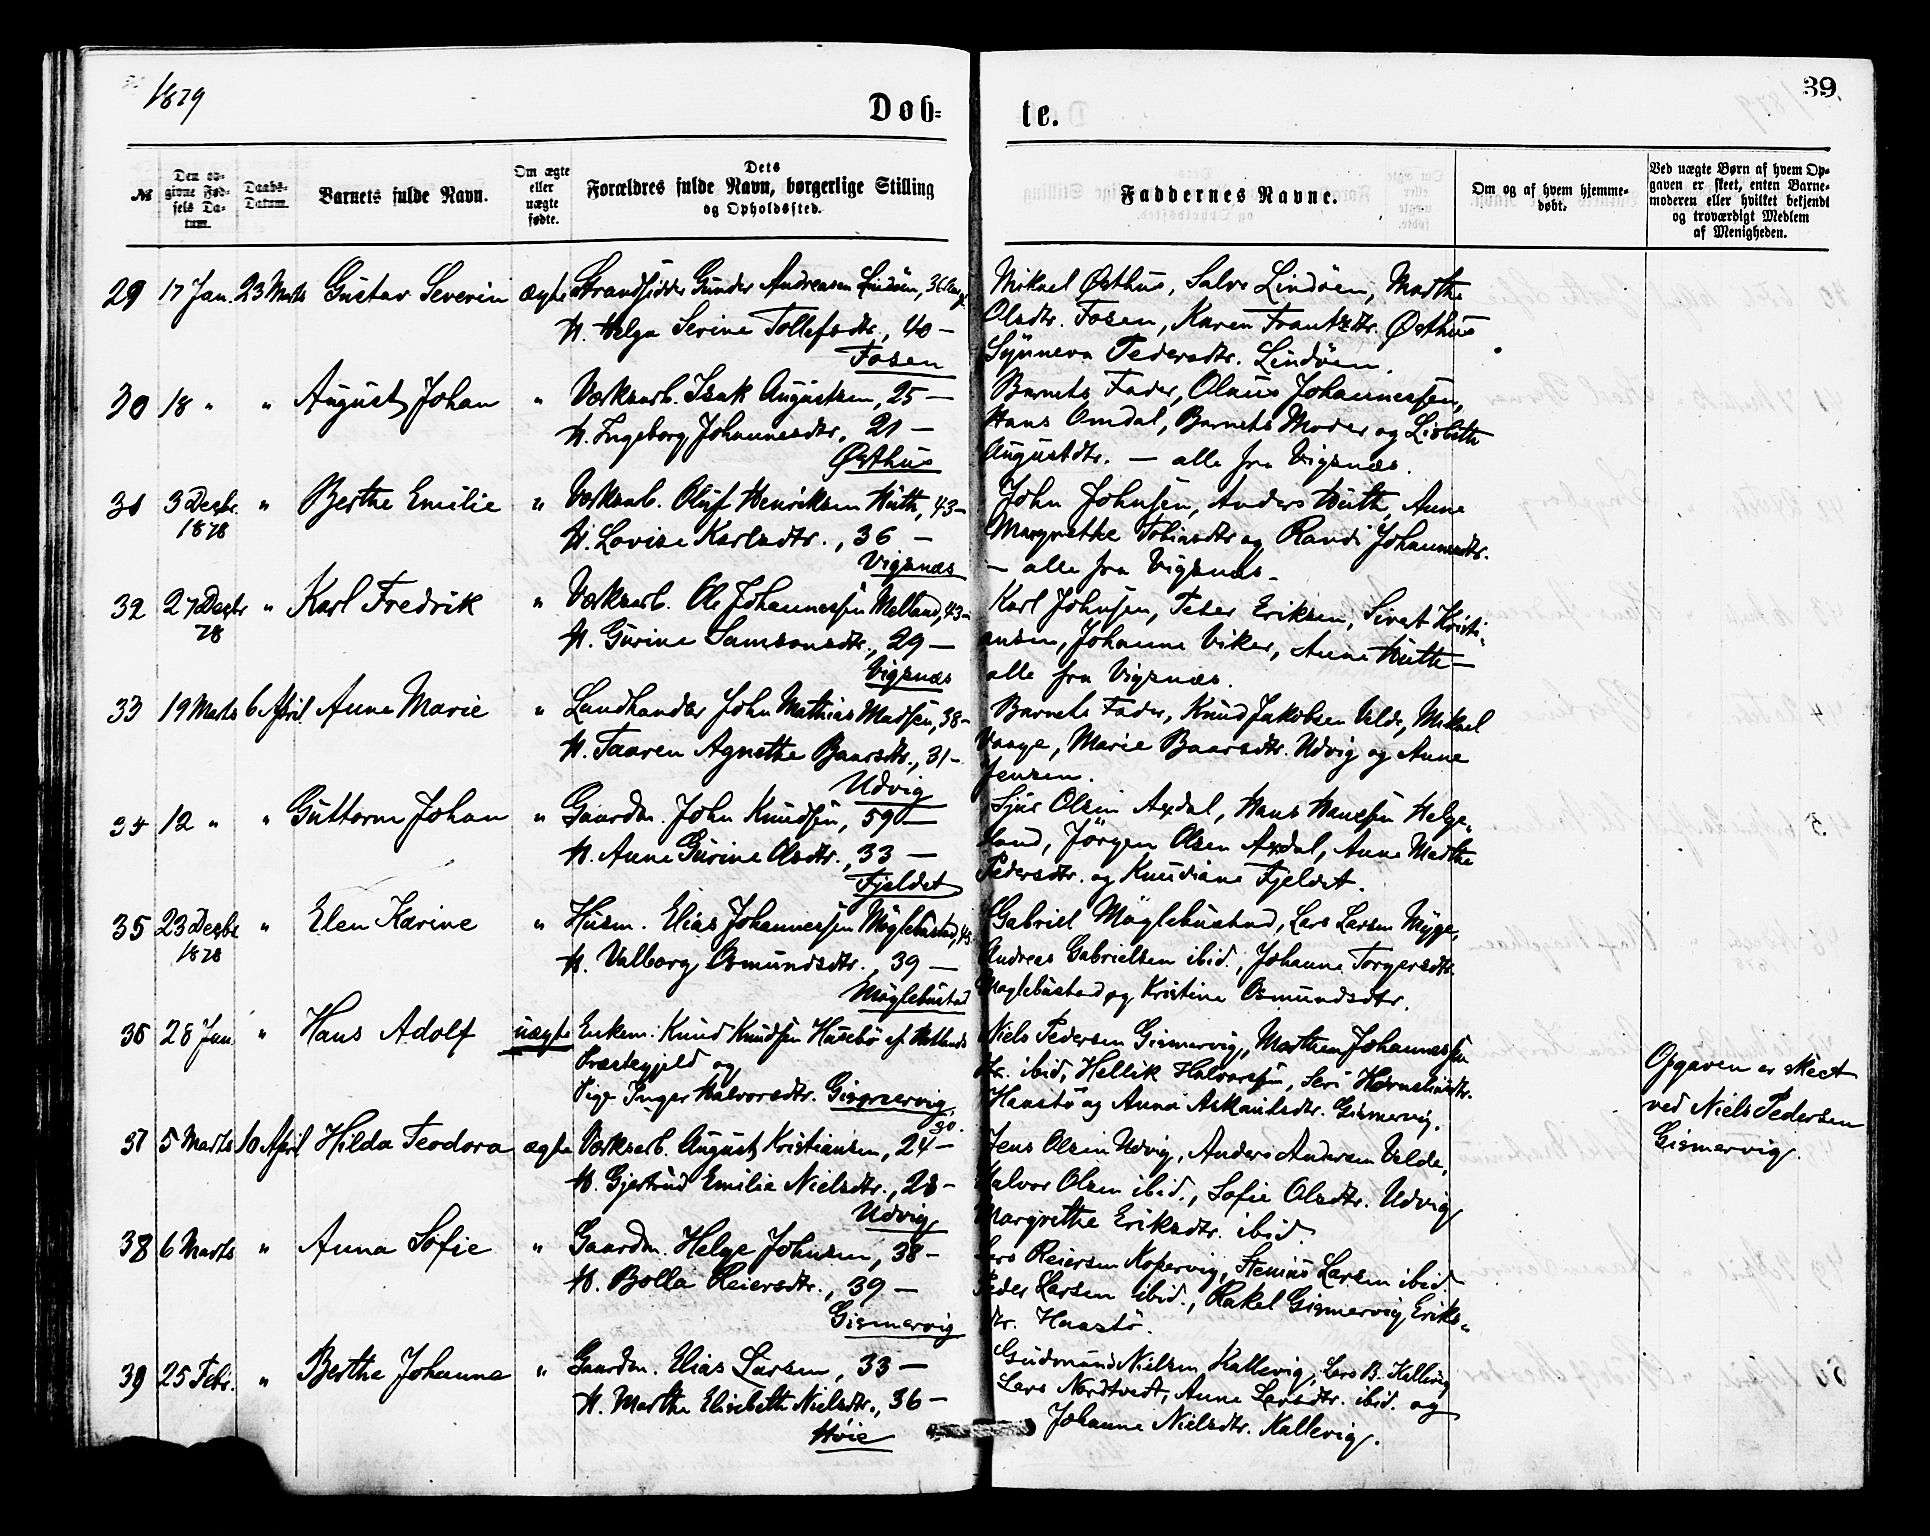 1879
Døb=
te.
39.
№
Den op-
givne Fød-
sels Da-
tum.
Daabs-
Datum.
Barnets fulde Navn.
Om ægte
eller
uægte
fødte.
Dets
Forældres fulde Navn, borgerlige Stilling
og Opholdssted.
Faddernes Navne.
Om og af hvem hjemme-
døbt.
Ved uægte Børn af hvem Op-
gaven er skeet, enten Barne-
moderen eller hvilket bekjendt
og troværdigt Medlem
af Menigheden.
29 17 Jan. 23 Marts Gustav Severin ægte Strandsidder Gunder Andreasen Lindöen, 36
H. Helga Serine Tollefsdtr., 40 —
Fosen
Mikael Østhus, Salve Lindöen, Marthe
Olsdtr. Fosen, Karen Frantzdtr. Østhus
Synneva Pedersdtr. Lindöen.
30 18 " " August Johan " Værksarb. Isak Augustsen, 25 —
H. Ingeborg Johannesdtr., 21 —
Østhus
Barnets Fader, Olaus Johannessen,
Hans Omdal, Barnets Moder og Lisbeth
Augustdtr. — alle fra Vigsnæs.
31 3 Decbr. " Berthe Emilie " Værksarb. Oluf Henriksen Huth, 43 —
1878
H. Lovise Karlsdtr., 36 —
Vigsnæs
John Johnsen, Anders Huth, Anne
Margrethe Tobiasdtr og Randi Johannesdtr.
— alle fra Vigsnæs —
32 27 Decbr " Karl Fredrik " Værksarb. Ole Johannessen Melland, 43 —
78
H. Gurine Samsonsdtr., 29 —
Vigsnæs
Karl Johnsen, Peter Eriksen, Sivert Kristi-
ansen, Johanne Viker, Anne Huth —
alle fra Vigsnæs.
33 19 Marts 6 April Anne Marie " Landhandler John Mathias Madsen, 38 —
H. Taaren Agnethe Baarsdtr., 31 —
Udvig
Barnets Fader, Knud Jakobsen Velde, Mikael
Vaage, Marie Baarsdtr. Udvig og Anne
Jensen.
34 12 " " Guttorm Johan " Gaardm. John Knudsen, 59 —
H. Anne Gurine Olsdtr., 33 —
Fjeldet
Sjur Olsen Axdal, Hans Hansen Helge-
land, Jörgen Olsen Axdal, Anne Marthe
Pedersdtr. og Knudiane Fjeldet.
35 23 Decbr " Elen Karine " Husm. Elias Johannessen Möglebustad, 43
1878
H. Valborg Osmundsdtr., 39 —
Möglebustad
Gabriel Möglebustad, Lars Larsen Myge,
Andreas Gabrielsen ibid., Johanne Torgersdtr.
Möglebustad og Kristine Osmundsdtr.
36 28 Jan. " Hans Adolf uægte Enkem. Knud Knudsen Husebö af
Præstegjeld og
Pige Inger Halvorsdtr. Gismervig,
30.
Niels Pedersen Gismervig, Marthen Johannessen
ibid, Hellik Halvorsen, Seri Korneliusdtr.
Haastö og Anna Askautsdtr. Gismervig.
Opgaven er skeet
ved Niels Pedersen
Gismervig.
37 5 Marts 10 April Hilda Teodora ægte Værksarb. August Kristiansen, 24 —
H. Gjertrud Emilie Nielsdtr., 28 —
Udvig
Jens Olsen Udvig, Anders Andersen Velde,
Halvor Olsen ibid., Sofie Olsdtr. Udvig
Margrethe Eriksdtr. ibid.
38 6 Marts " Anna Sofie " Gaardm. Helge Johnsen, 38 —
H. Bolla Reiersdtr., 39 —
Gismervig
Lars Reiersen Kopervig, Stenius Larsen ibid
Peder Larsen ibid., Rakel Gismervig Eriks-
dtr. Haastö.
39 25 Febr. " Berthe Johanne " Gaardm. Elias Larsen, 33 —
H. Marthe Elisebeth Nielsdtr., 36 —
Høie
Gudmund Nielsen Kallevig, Lars B. Kallevig
Lars Nordtvedt, Anne Larsdtr. ibid. og
Johanne Nielsdtr. Kallevig.